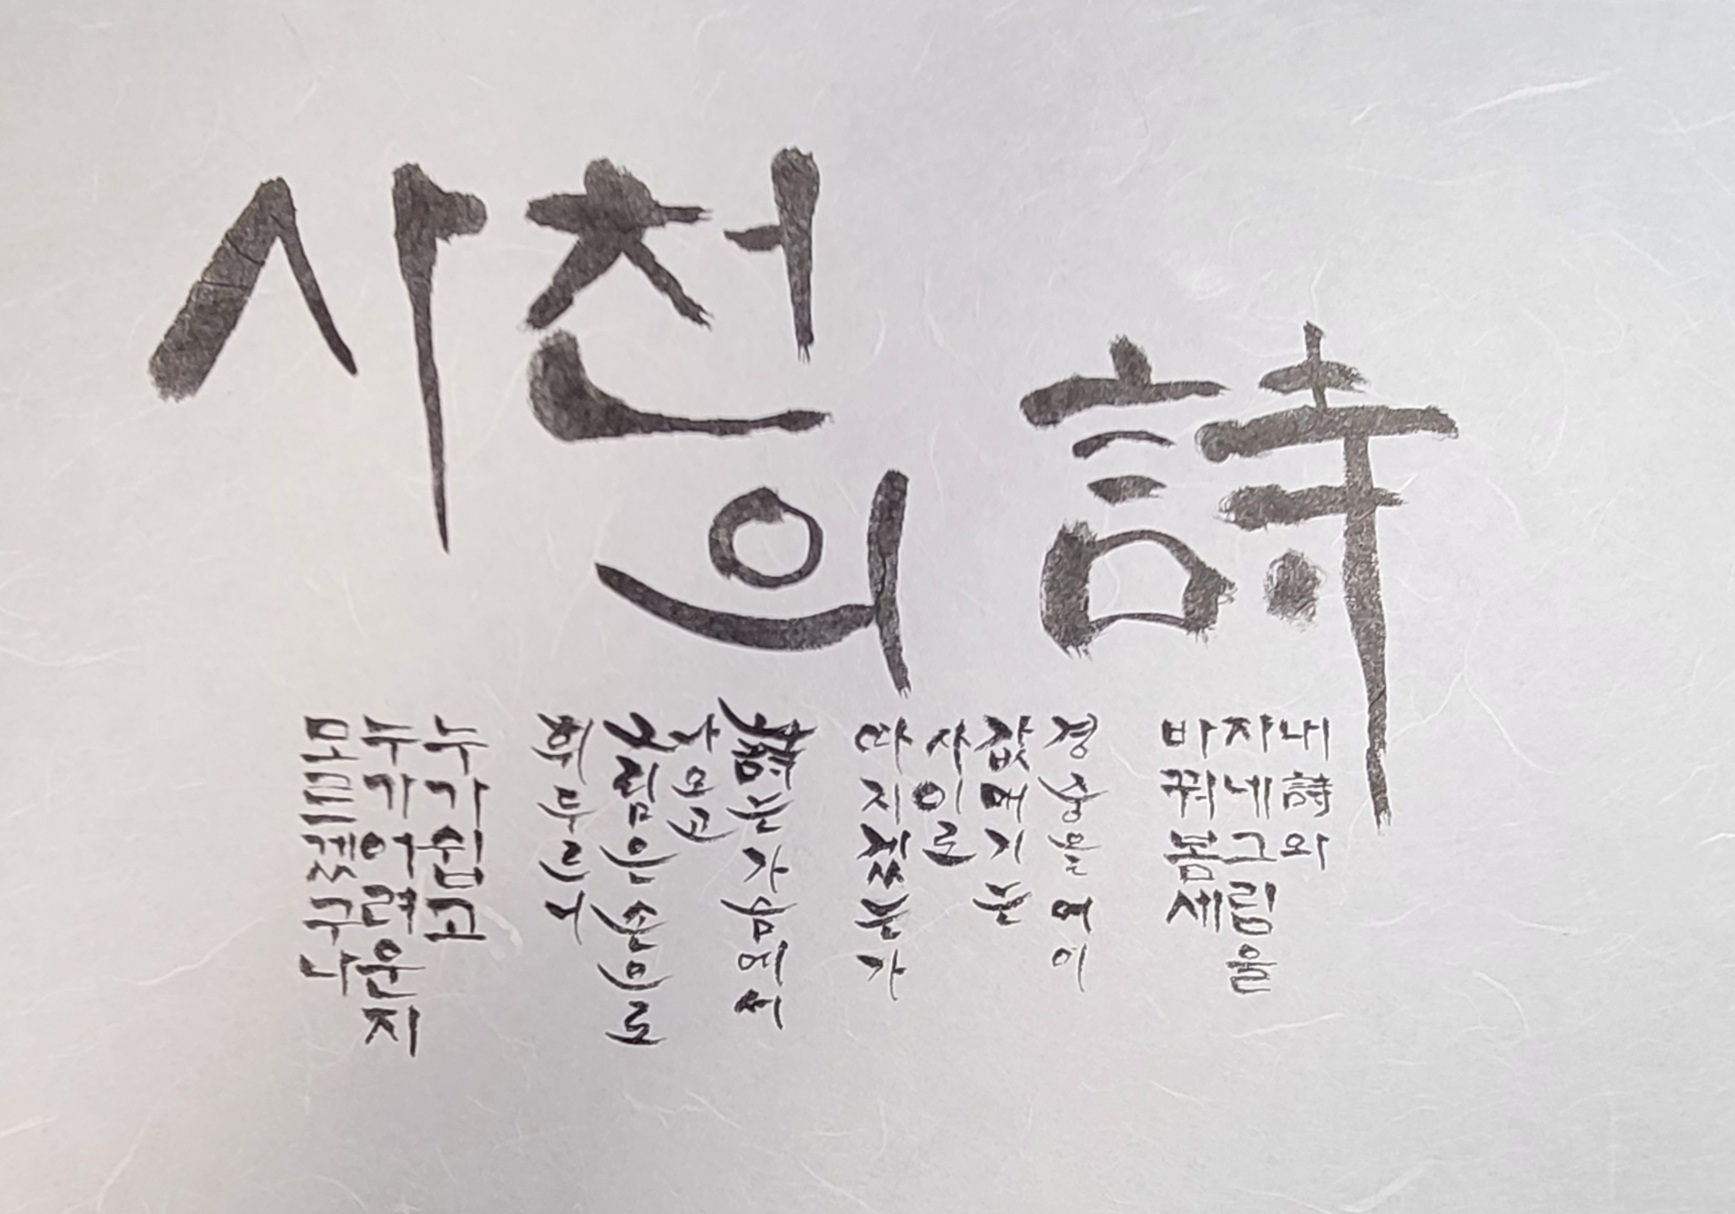 사천의 詩
내詩와
자네그림을
바꿔봄세
경중을어이
값매기는
사이로
따지겠는가
詩는가슴에서
나오고
그림은손으로
휘두르니
누가쉽고
누가어려운지
모르겠구나